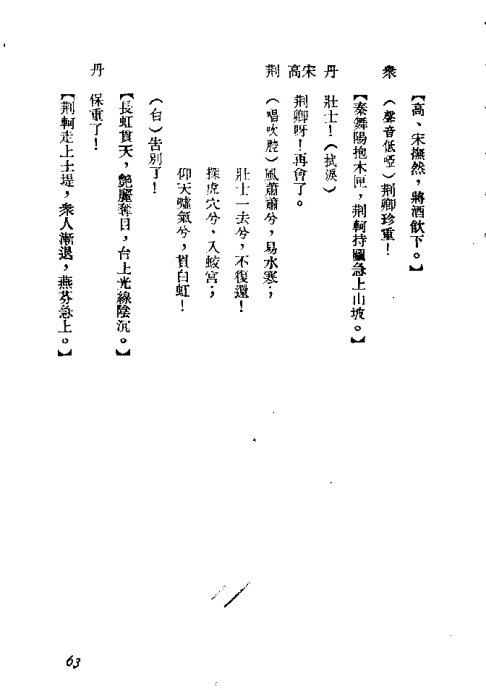 【高、宋撫然，將酒飲下。】
衆　（聲音低啞）荆卿珍重！
【秦舞陽抱木匣，荆軻持圖急上山坡。】
丹　壯士！（拭淚）
宋高　荆卿呀！再會了。
荆　（唱吹腔）風蕭蕭兮，易水寒；
壯士一去兮，不復還！
探虎穴兮，入蛟宮；
仰天噓氣兮，貫白虹！
（白）告別了！
【長虹貫天，艷麗奪目，台上光線陰沉。】
丹　保重了！
【荆軻走上土堤，衆人漸退，燕芬急上。】
63